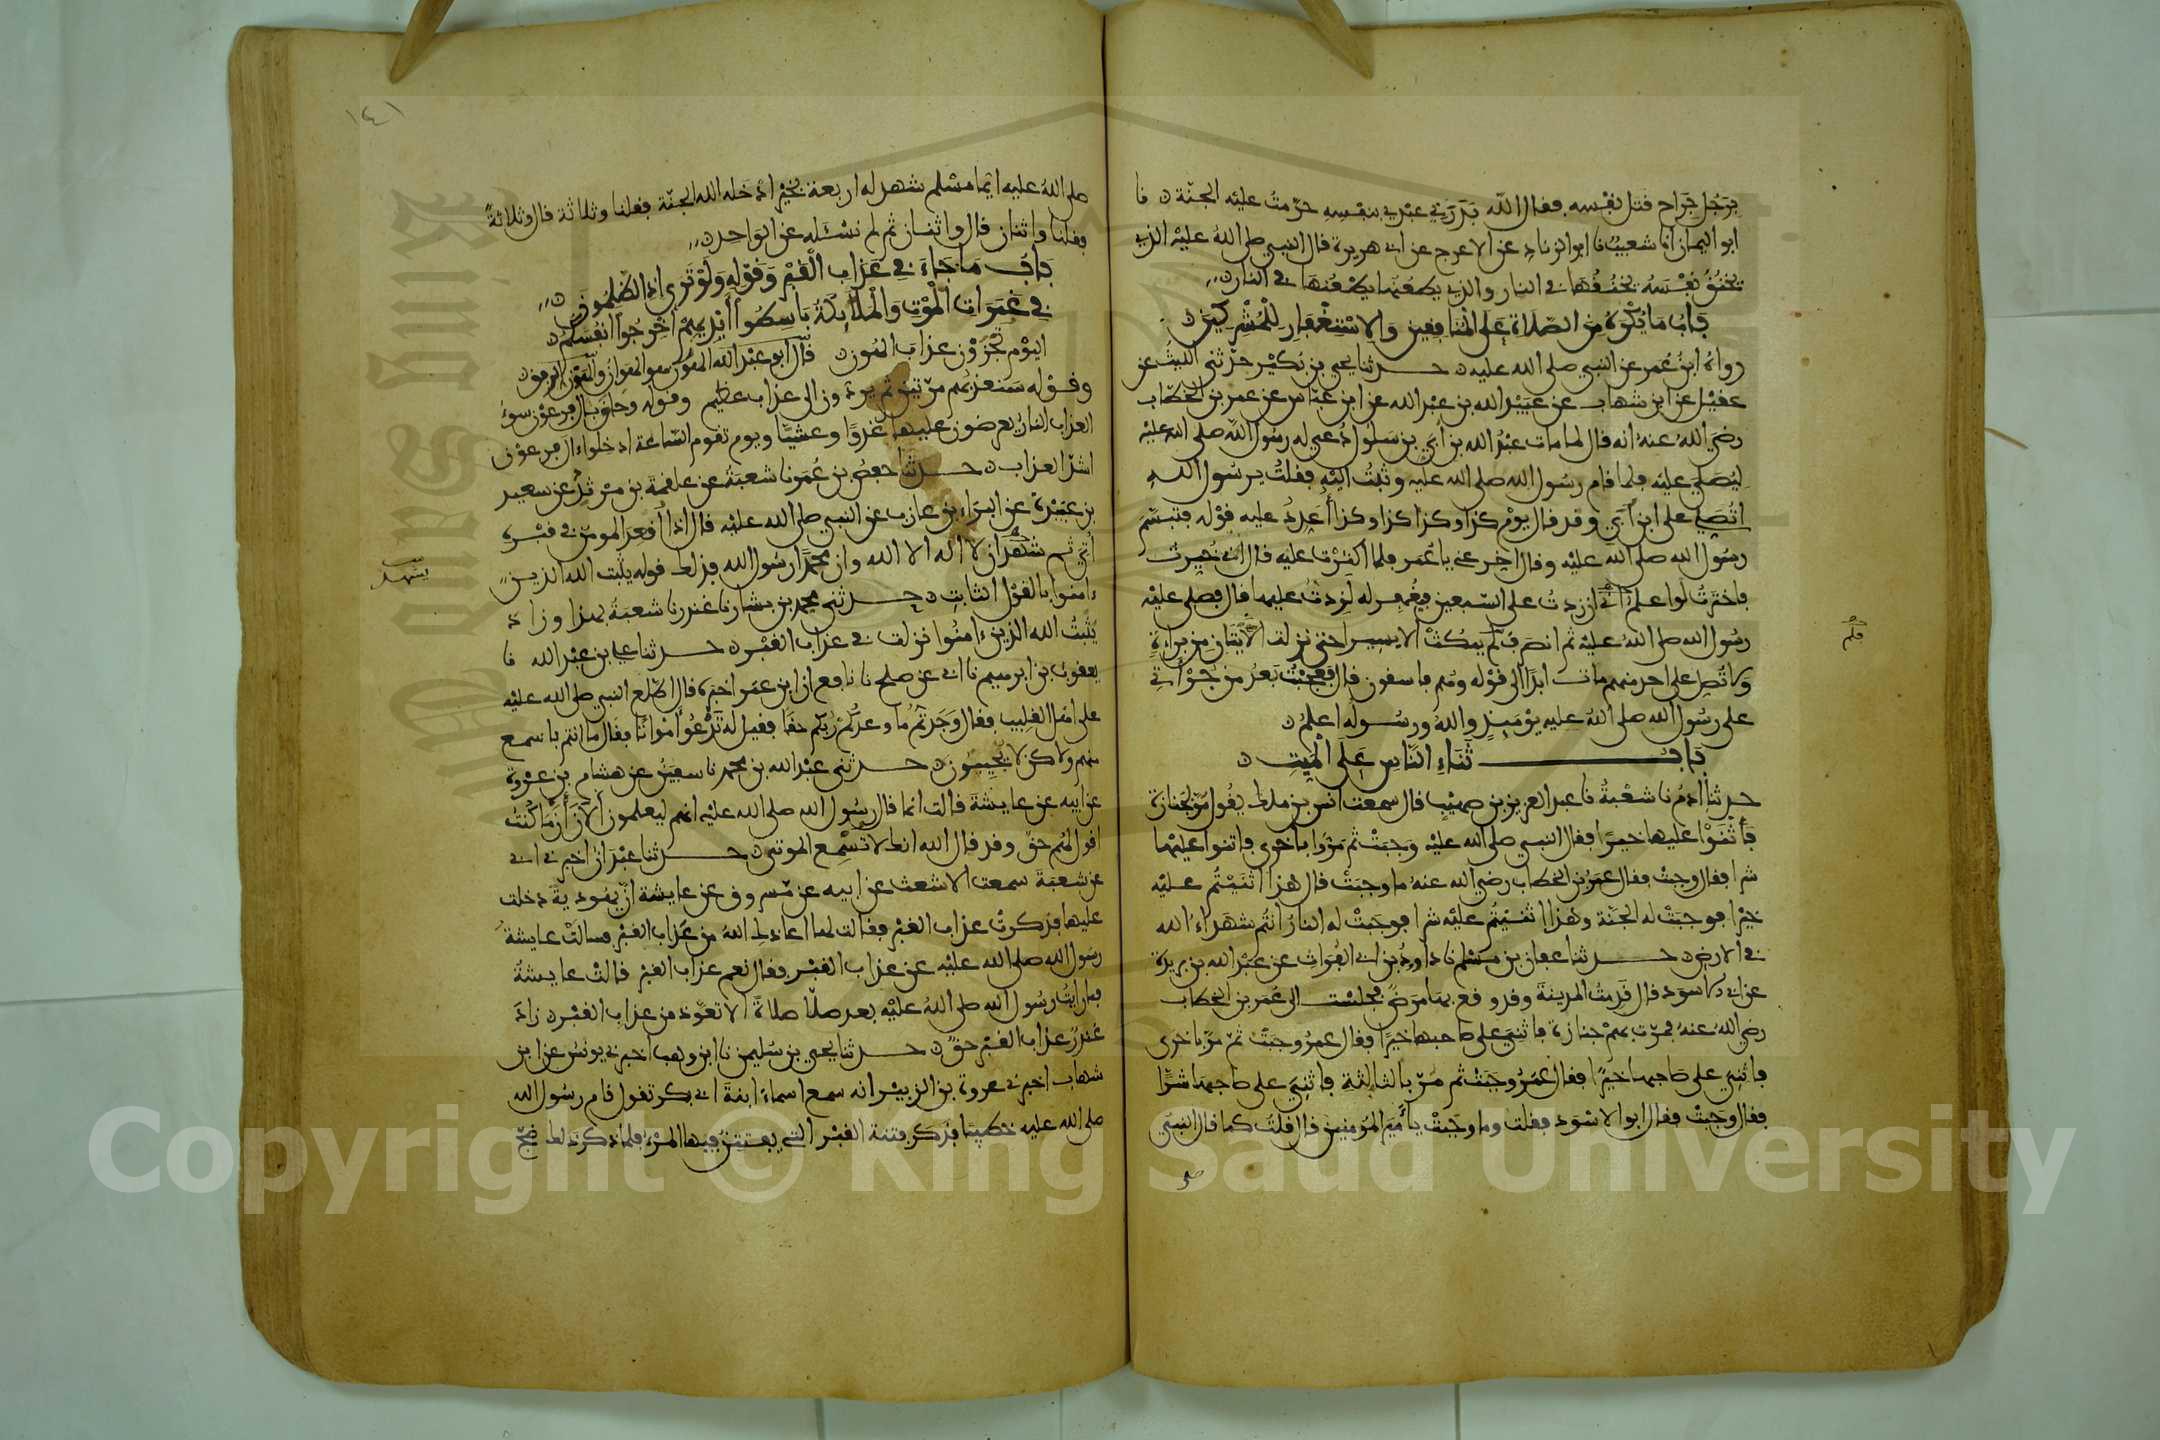 برجل جراح قتل نفسه فقال الله بدرني عبدي بنفسه حرمت عليه الجنة نا
ابو اليمان انا شعيب نا ابو الزناد عن الاعرج عن ابي هريرة قال النبي صلى الله عليه الذي
يخنق نفسه يخنقها في النار والذي يطعنها يطعنها في النار
باب ما يكره من الصلاة على المنافقين والاستغفار للمشركين
رواه ابن عمر عن النبي صلى الله عليه حدثنا يحيى بن بكير حدثني الليث عن
عقيل عن ابن شهاب عن عبيد الله بن عبد الله عن ابن عباس عن عمر بن الخطاب
رضي الله عنه انه قال لما مات عبد الله بن ابي بن سلول دعي له رسول الله صلى الله عليه
ليصلي عليه فلما قام رسول الله صلى الله عليه وثبت اليه فقلت يرسول الله
اتصلي على ابن ابي وقد قال يوم كذا وكذا كذا وكذا أعدد عليه قوله فتبسم
رسول الله صلى الله عليه وقال اخر عني يا عمر فلما اكثرت عليه قال اني خيرت
فاخترت لو اعلم اني ان زدت على السبعين فغفر له لزدت عليها قال فصلى عليه
رسول الله صلى الله عليه ثم انصرف فلم يمكث الا يسيرا حتى نزلت الايتان من براءة
ولا تصل على احد منهم مات ابدا الى قوله وهم فاسقون قال فعجبت بعد من جرأتي
على رسول الله صلى الله عليه يومئذ والله ورسوله اعلم
باب ثناء الناس على الميت
حدثنا ادم نا شعبة نا عبد العزيز بن صهيب قال سمعت انس بن ملك يقول مر بجنازة
فأثنوا عليها خيرا فقال النبي صلى الله عليه وجبت ثم مروا باخرى فاثنوا عليها
شرا فقال وجبت فقال عمر بن الخطاب رضي الله عنه ما وجبت قال هذا اثنيتم عليه
خيرا فوجبت له الجنة وهذا اثنيتم عليه شرا فوجبت له النار انتم شهداء الله
في الارض حدثنا عفان بن مسلم نا داود بن ابي الفرات عن عبد الله بن بريدة
عن ابي الاسود قال قدمت المدينة وقد وقع بها مرض فجلست الى عمر بن الخطاب
رضي الله عنه فمرت بهم جنازة فاثني على صاحبها خيرا فقال عمر وجبت ثم مر باخرى
فاثني على صاحبها خيرا فقال عمر وجبت ثم مر بالثالثة فاثني على صاحبها شرا
فقال وجبت فقال ابو الاسود فقلت وما وجبت يا أمير المومنين قال قلت كما قال النبي
صلى
فلم
١٤١
صلى الله عليه ايما مسلم شهد له اربعة بخير ادخله الله الجنة فقلنا وثلاثة قال وثلاثة
وقلنا واثنان قال واثنان ثم لم نسئله عن الواحد
باب ما جاء في عذاب القبر وقوله ولو ترى اذ الظلمون
في غمرات الموت والملائكة باسطوا أيديهم أخرجوا أنفسكم
اليوم تجزون عذاب الهون قال ابو عبد الله الهون هو الهوان والهون الرفق
وقوله سنعذبهم مرتين ثم يردون الى عذاب عظيم وقوله وحاق بال فرعون سوء
العذاب النار يعرضون عليها غدوا وعشيا ويوم تقوم الساعة ادخلوا ءال فرعون
اشد العذاب حدثنا حفص بن عمر نا شعبة عن علقمة بن مرثد عن سعيد
بن عبيدة عن البراء بن عازب عن النبي صلى الله عليه قال اذا أقعد المومن في قبره
أتي ثم شهد ان لا اله الا الله وان محمدا رسول الله فذلك قوله يثبت الله الذين
ءامنوا بالقول الثابت حدثني محمد بن بشار نا غندر نا شعبة بهذا وزاد
يثبت الله الذين ءامنوا نزلت في عذاب القبر حدثنا علي بن عبد الله نا
يعقوب بن ابرهيم نا ابي عن صلح نا نافع ان ابن عمر اخبره قال اطلع النبي صلى الله عليه
على اهل القليب فقال وجدتم ما وعدكم ربكم حقا فقيل له تدعو أمواتا فقال ما انتم باسمع
منهم ولاكن لا يجيبون حدثني عبد الله بن محمد نا سفين عن هشام بن عروة
عن ابيه عن عايشة قالت انما قال رسول الله صلى الله عليه انهم ليعلمون الآن أن ما كنت
اقول لهم حق وقد قال الله انك لا تسمع الموتى حدثنا عبدان اخبرني ابي
عن شعبة سمعت الاشعث عن ابيه عن مسروق عن عايشة ان يهودية دخلت
عليها فذكرت عذاب القبر فقالت لها اعاذك الله من عذاب القبر فسالت عايشة
رسول الله صلى الله عليه عن عذاب القبر فقال نعم عذاب القبر قالت عايشة
فما رايت رسول الله صلى الله عليه بعد صلى صلاة الا تعوذ من عذاب القبر زاد
غندر عذاب القبر حق حدثنا يحيى بن سليمن نا ابن وهب اخبرني يونس عن ابن
شهاب اخبرني عروة بن الزبير انه سمع اسماء ابنة ابي بكر تقول قام رسول الله
صلى الله عليه خطيبا فذكر فتنة القبر التي يفتتن فيها المرء فلما ذكر ذلك ضج
يشهد
Copyright © King Saud University